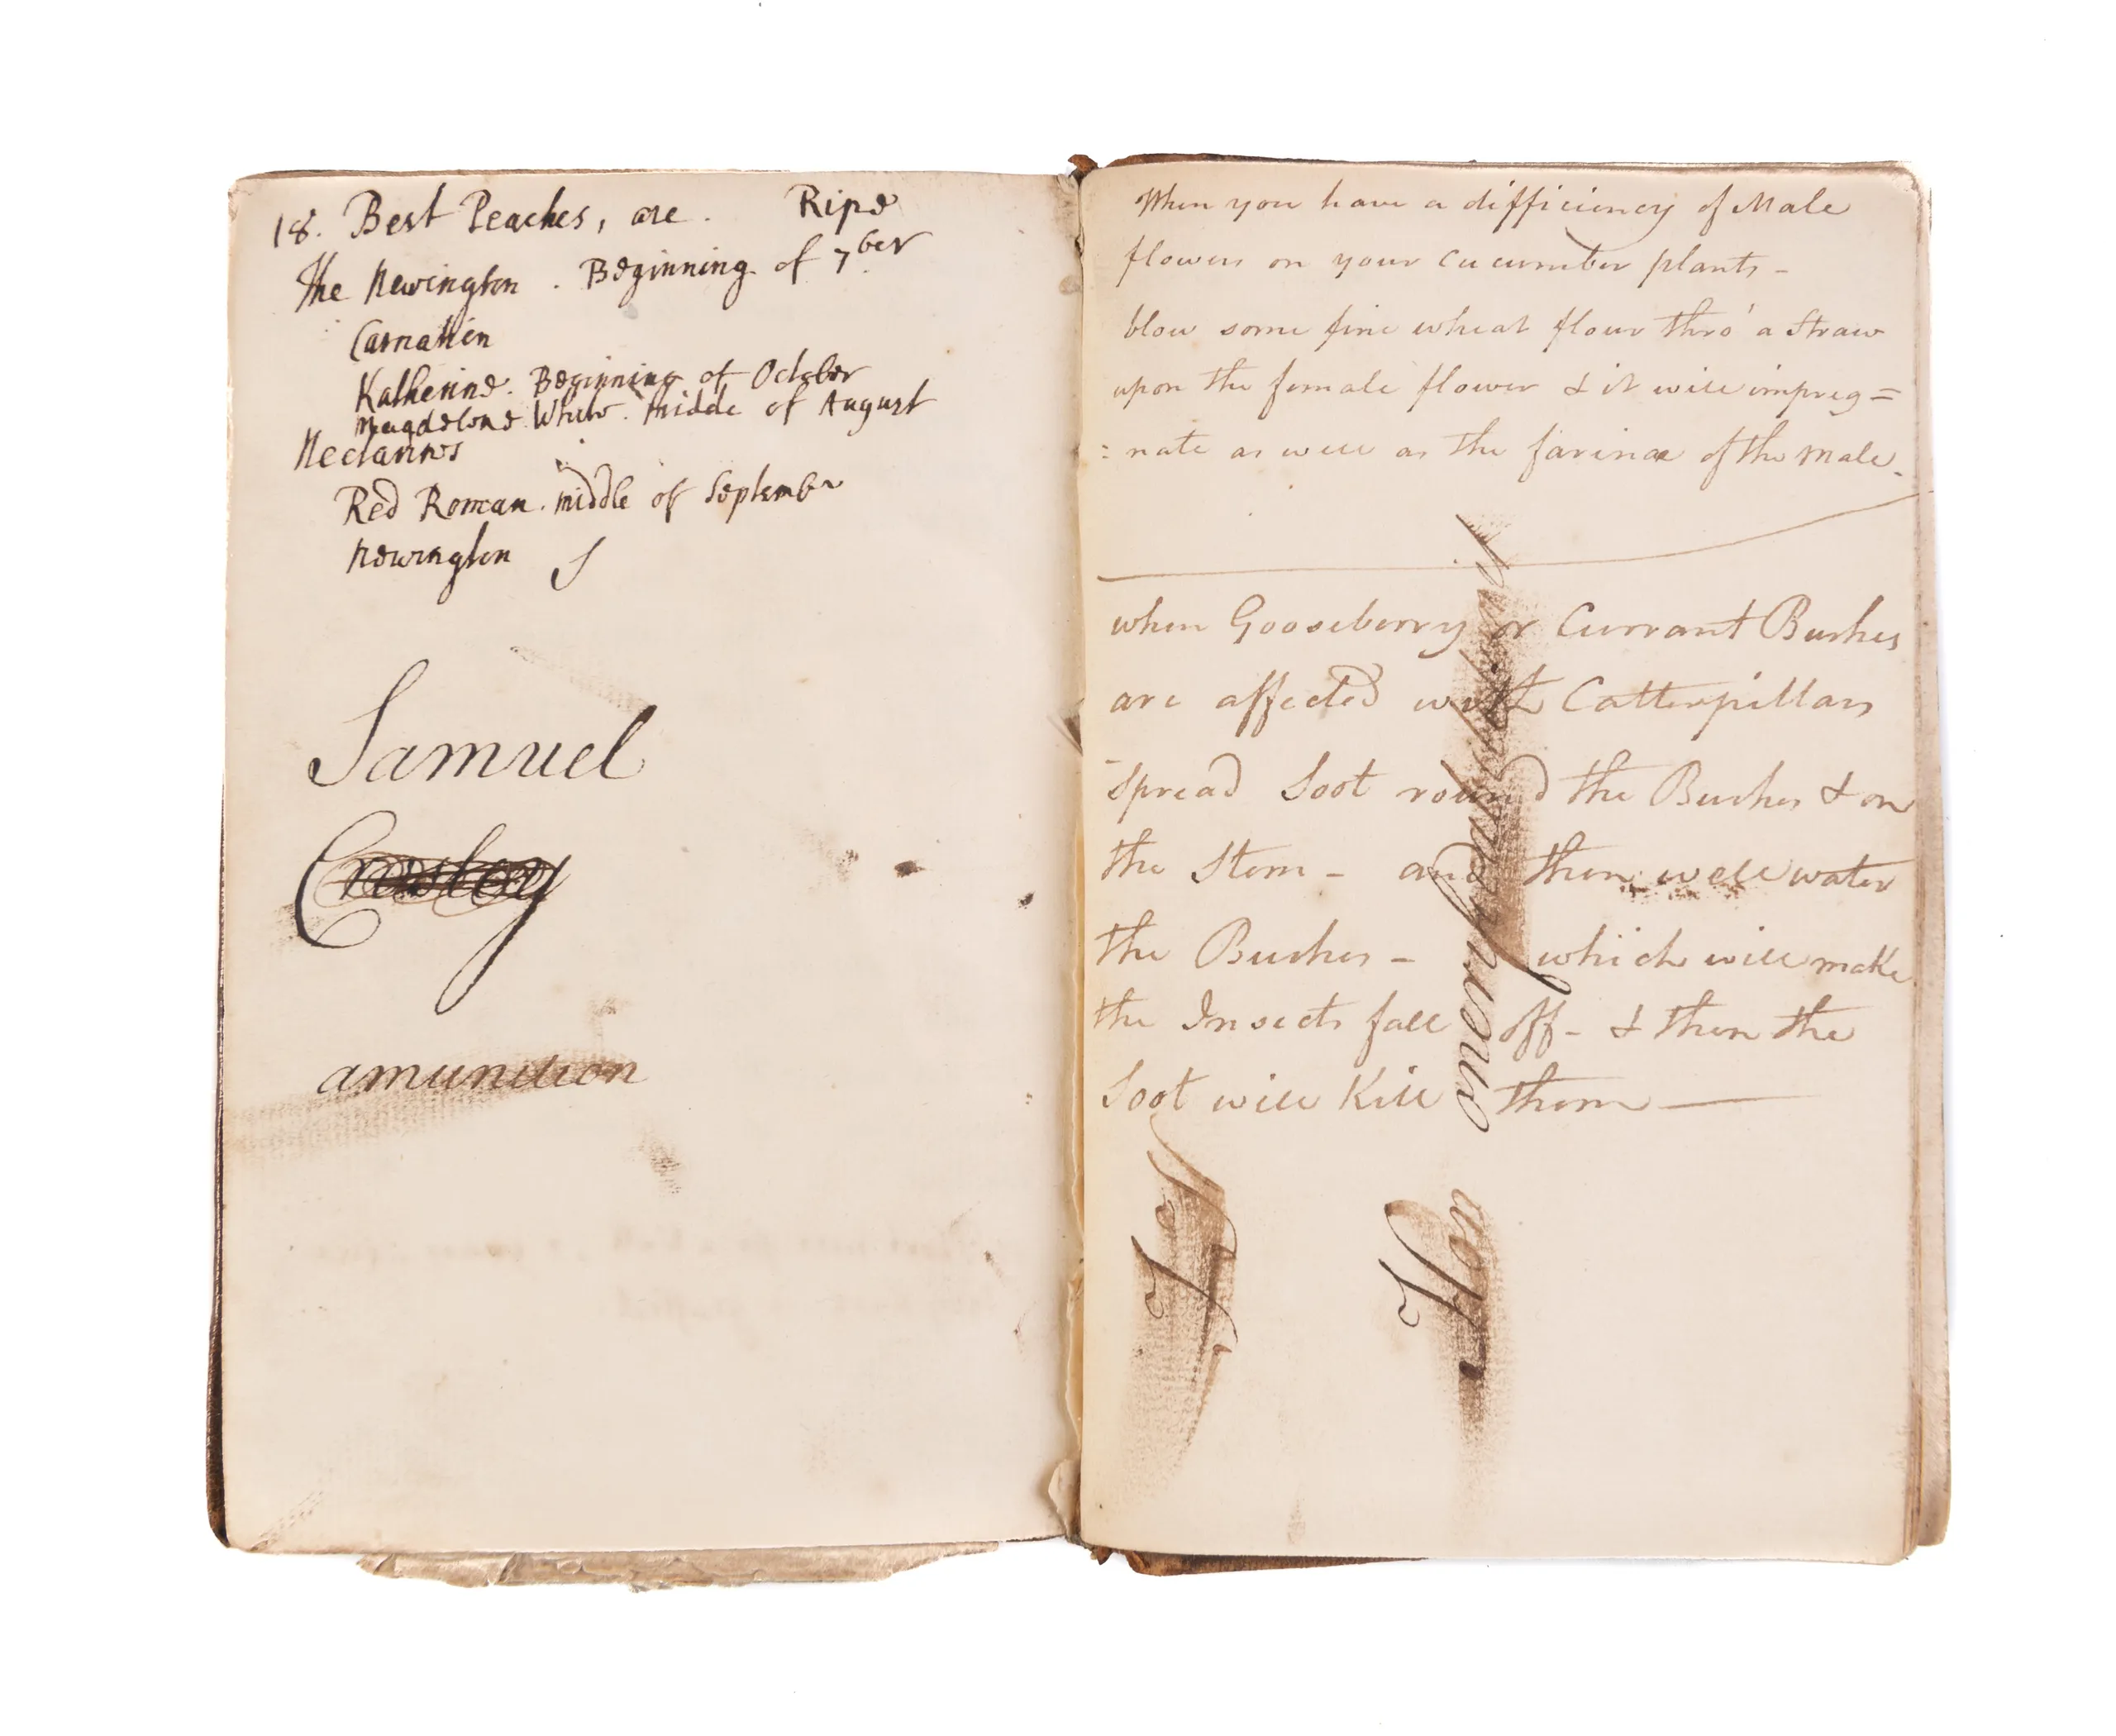 18. Best Peaches, are. Ripe
The Newington. Beginning of 7ber
Carnation
Katherine. Beginning of October
Magdelone White. middle of August
Nectarins
Red Roman. middle of September
Newington
Samuel
Crosley
amunition
When you have a difficiency of Male
flowers on your Cucumber plants -
blow some fine wheat flour thro' a Straw
upon the female flower & it will impreg=
=nate as well as the farinae of the Male.
when Gooseberry or Currant Bushes
are affected with Catterpillars
spread Soot round the Bushes & on
the Stem - and then well water
the Bushes - which will make
the Insects fall off - & then the
Soot will Kill them
Hon